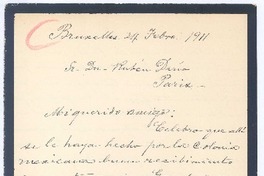 Bruxelles 24 Febro. 1911
Sr. Dn. Rubén Darío
Paris.
Mi querido amigo:
Celebro que allí
se le haya hecho por la Colonia
mexicana buen recibimiento